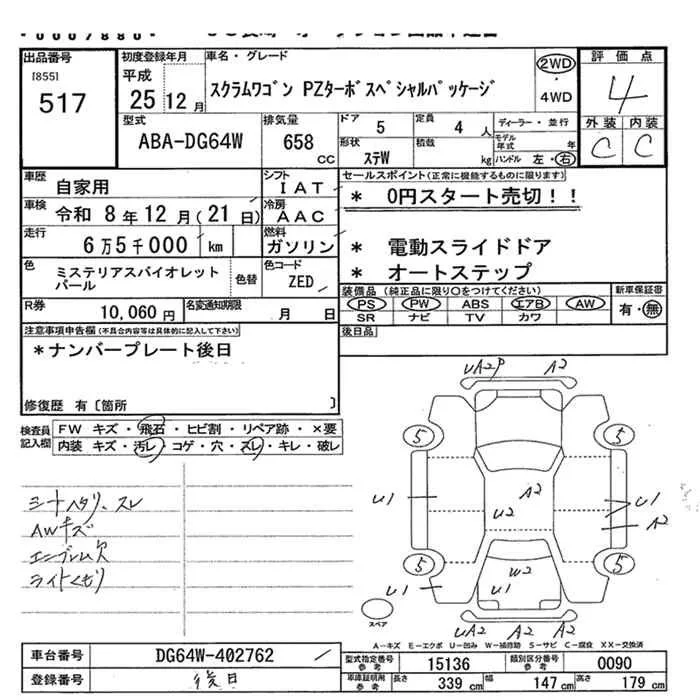 出品番号
[855]
517
初度登録年月
平成
25 12 月
車名・グレード
スクラムワゴン PZターボスペシャルパッケージ
2WD
・
4WD
評価点
4
外装 内装
C C
型式
ABA-DG64W
排気量
658 CC
ドア
5
定員
4 人
形状
ステW
積載
kg
ディーラー・並行
モデル年式 年
ハンドル 左・右
車歴
自家用
シフト
IAT
車検
令和 8年 12月(21日)
冷房
AAC
走行
6万5千000 km
燃料
ガソリン
色
ミステリアスバイオレット
パール
色替
色コード
ZED
R券
10,060 円
名変通知期限
月 日
セールスポイント(正常に機能するものに限ります)
* 0円スタート売切!!
* 電動スライドドア
* オートステップ
装備品(純正品に限り○をつけてください)
PS PW ABS エアB AW
SR ナビ TV カワ
新車保証書
有・無
後日品
注意事項申告欄(不具合内容等は具体的に記入して下さい)
*ナンバープレート後日
修復歴 有〔箇所 〕
検査員
記入欄
FW キズ・飛石・ヒビ割・リペア跡・×要
内装 キズ・汚レ・コゲ・穴・スレ・キレ・破レ
シートヘタリ、スレ
AWキズ
エンブレム欠
ライトくもり
UA2P A2
5 5
U1 U2 A2 U1
A2
5 5
U1 W2
U1
UA2 A2 A2
スペア
A-キズ E-エクボ U-凹み W-補修跡 S-サビ C-腐食 XX-交換済
車台番号
DG64W-402762
登録番号
後日
型式指定番号
参考
15136
類別区分番号
参考
0090
車庫証明用
参考
長さ
339 cm
幅
147 cm
高さ
179 cm